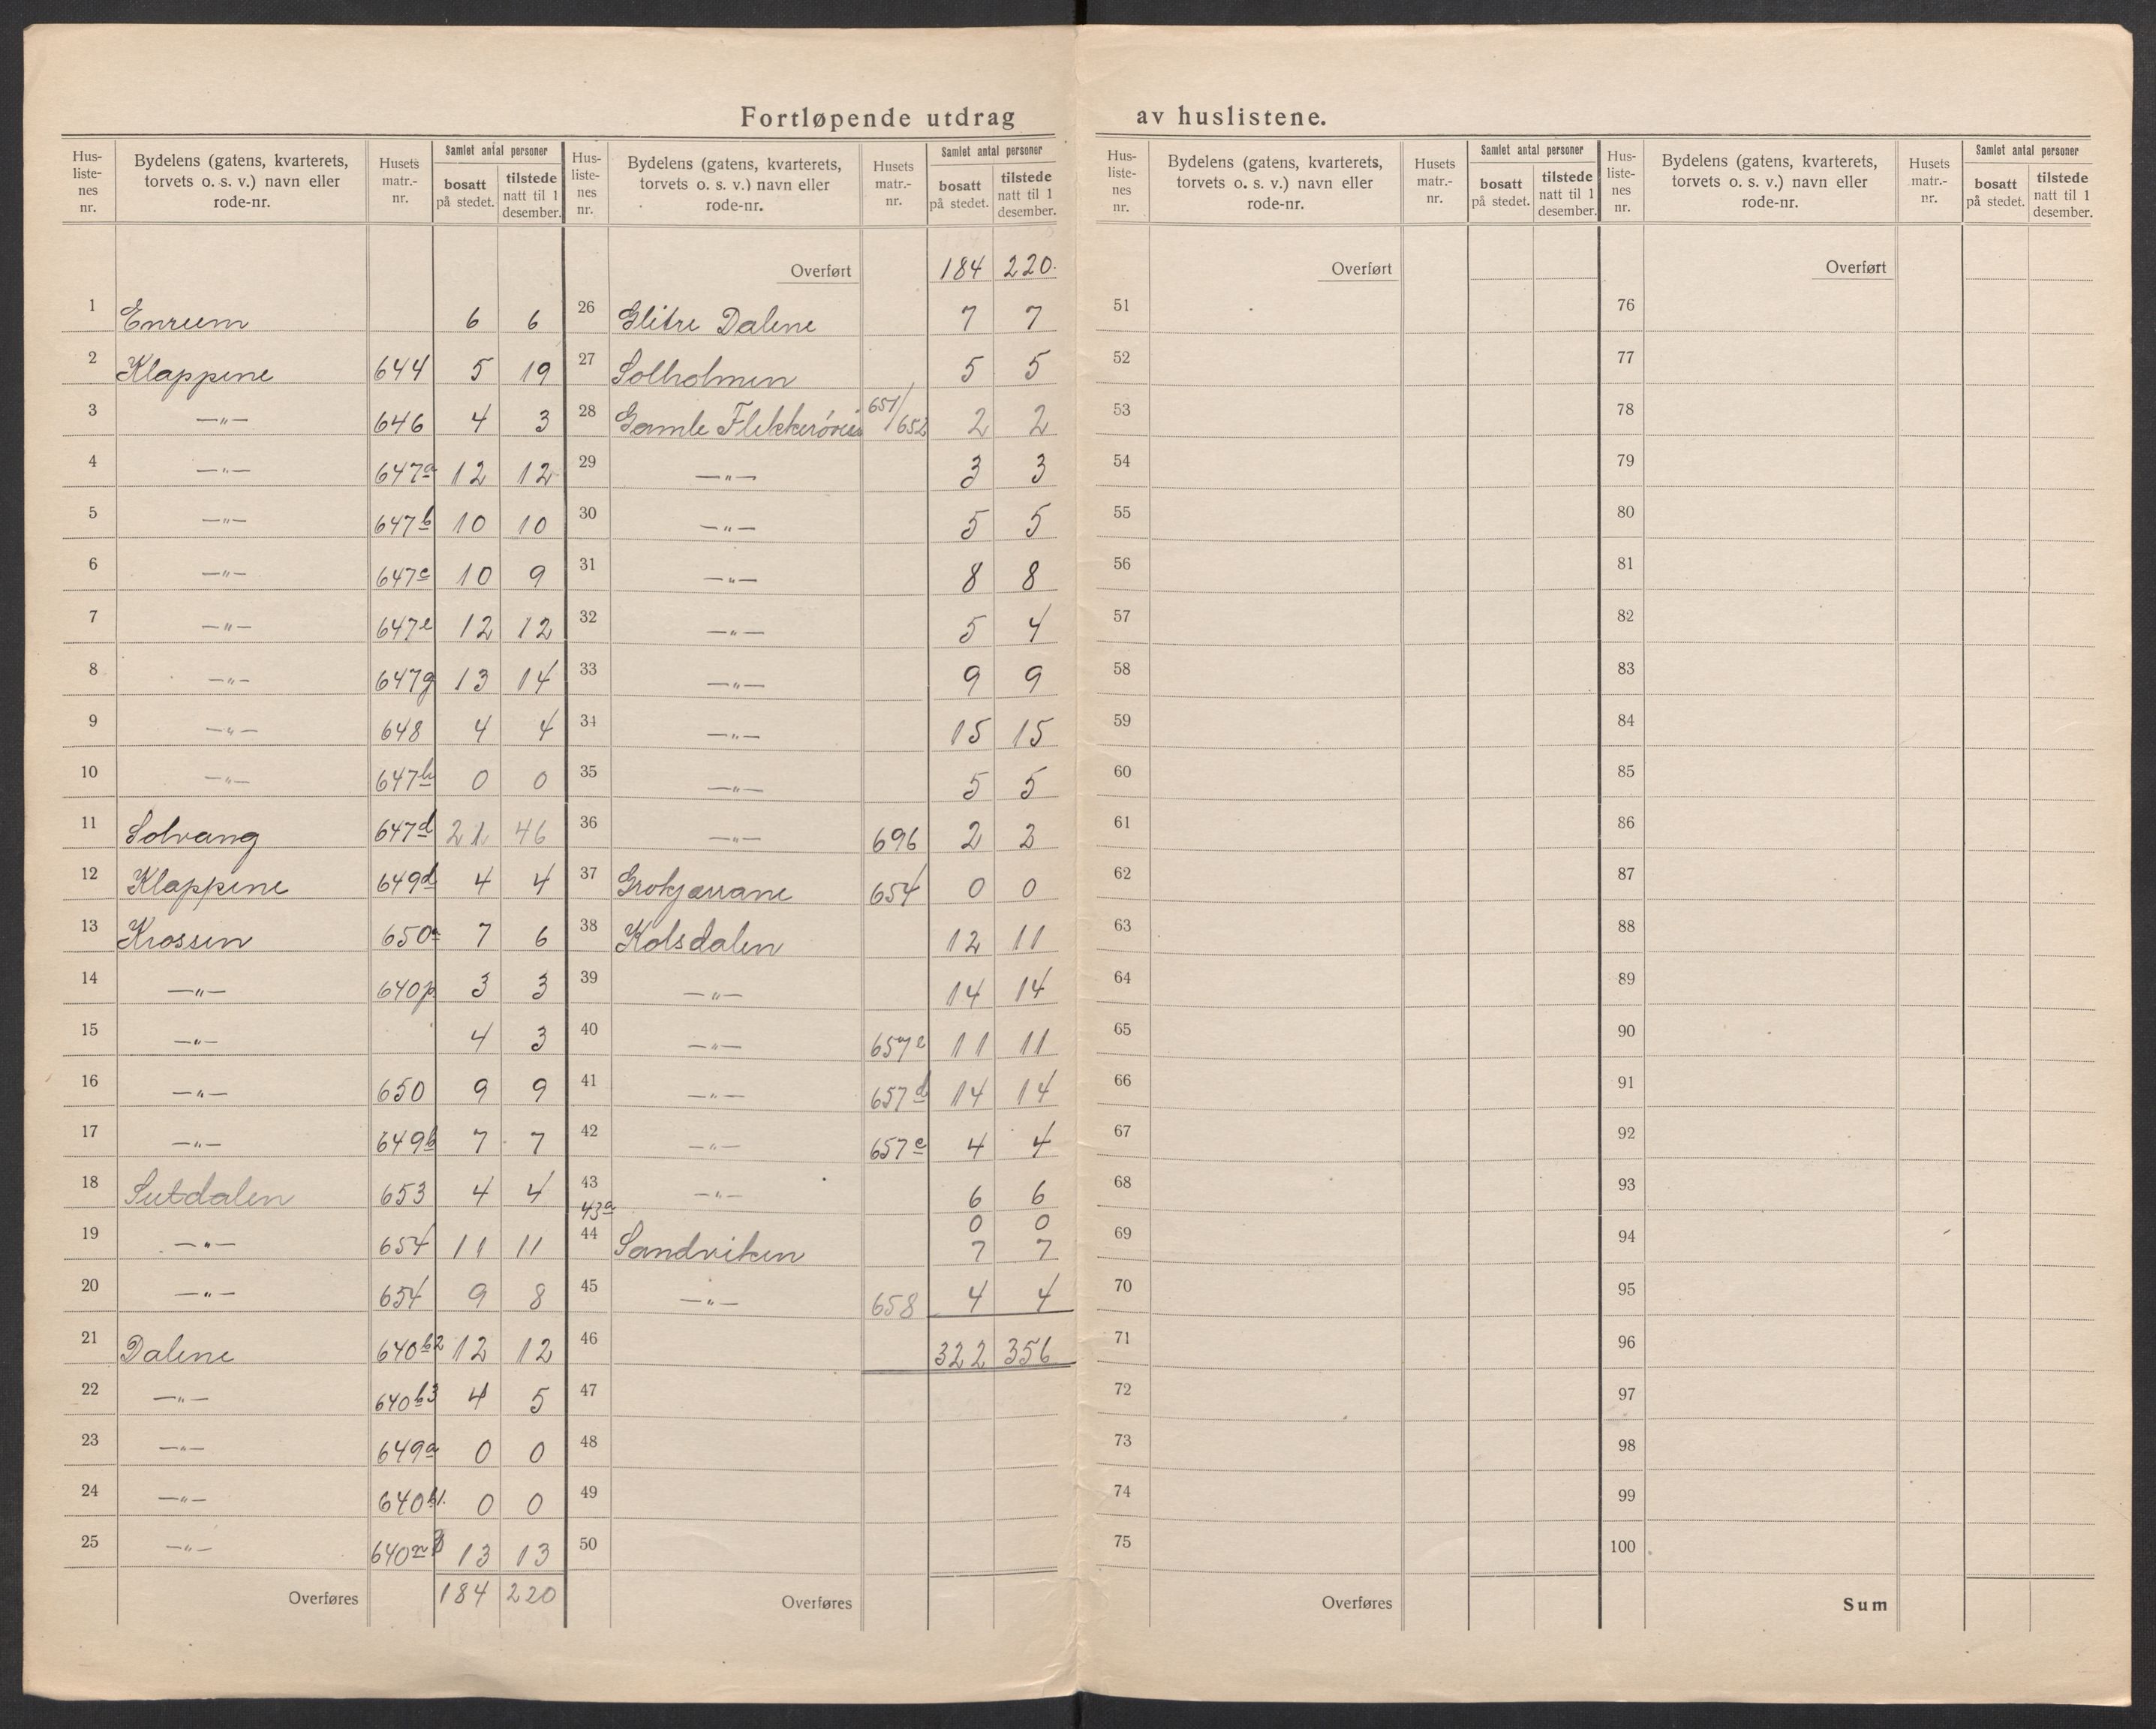 Fortløpende utdrag av huslistene.
Hus-liste-nes nr. | Bydelens (gatens, kvarterets, torvets o. s. v.) navn eller rode-nr. | Husets matr.-nr. | Samlet antal personer | bosatt på stedet. | tilstede natt til 1 desember.
1 Enrum 6 6
2 Klappene 644 5 19
3 —"— 646 4 3
4 —"— 647a 12 12
5 —"— 647b 10 10
6 —"— 647c 10 9
7 —"— 647e 12 12
8 —"— 647g 13 14
9 —"— 648 4 4
10 —"— 647h 0 0
11 Solvang 647d 21 46
12 Klappene 649d 4 4
13 Krossen 650a 7 6
14 —"— 640p 3 3
15 —"— 4 3
16 —"— 650 9 9
17 —"— 649b 7 7
18 Sutdalen 653 4 4
19 —"— 654 11 11
20 —"— 654 9 8
21 Dalene 640b2 12 12
22 —"— 640b3 4 5
23 —"— 649a 0 0
24 —"— 640b1. 0 0
25 —"— 640 13 13
Overføres 184 220
Hus-liste-nes nr. | Bydelens (gatens, kvarterets, torvets o. s. v.) navn eller rode-nr. | Husets matr.-nr. | Samlet antal personer | bosatt på stedet. | tilstede natt til 1 desember.
Overført 184 220.
26 Glitre Dalene 7 7
27 Solholmen 5 5
28 Gamle Flekkerøvei 651/652 2 2
29 —"— 3 3
30 —"— 5 5
31 —"— 8 8
32 —"— 5 4
33 —"— 9 9
34 —"— 15 15
35 —"— 5 5
36 —"— 696 2 2
37 Grokjærrane 654 0 0
38 Kolsdalen 12 11
39 —"— 14 14
40 —"— 657c 11 11
41 —"— 657d 14 14
42 —"— 657e 4 4
43 —"— 6 6
43a 0 0
44 Sandviken 7 7
45 —"— 658 4 4
46 322 356
47
48
49
50
Overføres
Hus-liste-nes nr. | Bydelens (gatens, kvarterets, torvets o. s. v.) navn eller rode-nr. | Husets matr.-nr. | Samlet antal personer | bosatt på stedet. | tilstede natt til 1 desember.
Overført
51
52
53
54
55
56
57
58
59
60
61
62
63
64
65
66
67
68
69
70
71
72
73
74
75
Overføres
Hus-liste-nes nr. | Bydelens (gatens, kvarterets, torvets o. s. v.) navn eller rode-nr. | Husets matr.-nr. | Samlet antal personer | bosatt på stedet. | tilstede natt til 1 desember.
Overført
76
77
78
79
80
81
82
83
84
85
86
87
88
89
90
91
92
93
94
95
96
97
98
99
100
Sum